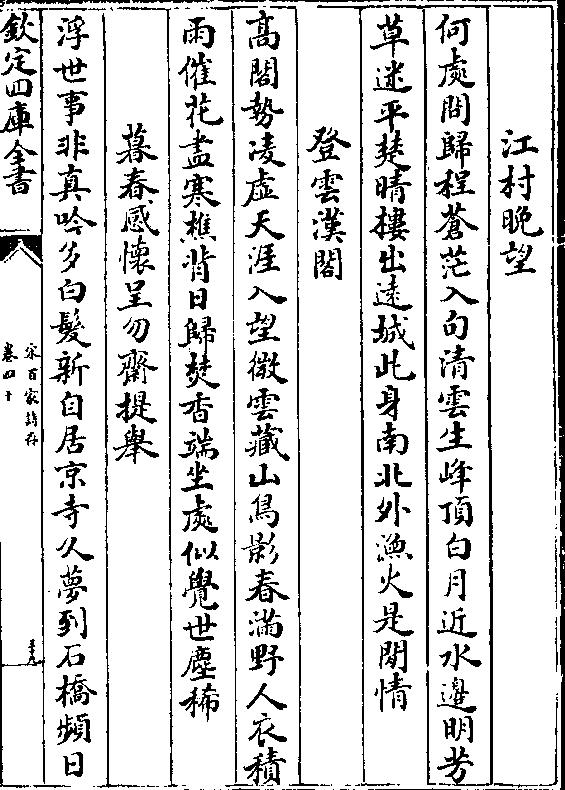 江村晚望
何處問歸程蒼茫入句清雲生峰頂白月近水邊明芳
草迷平楚晴樓出遠城此身南北外漁火是閒情
登雲漢閣
高閣勢凌虛天涯入望微雲藏山鳥影春滿野人衣積
雨催花盡寒樵背日歸焚香端坐處似覺世塵稀
暮春感懷呈勿齋提舉
浮世事非真吟多白髮新自居京寺久夢到石橋頻日
欽定四庫全書
宋百家詩存
卷四十
三十九